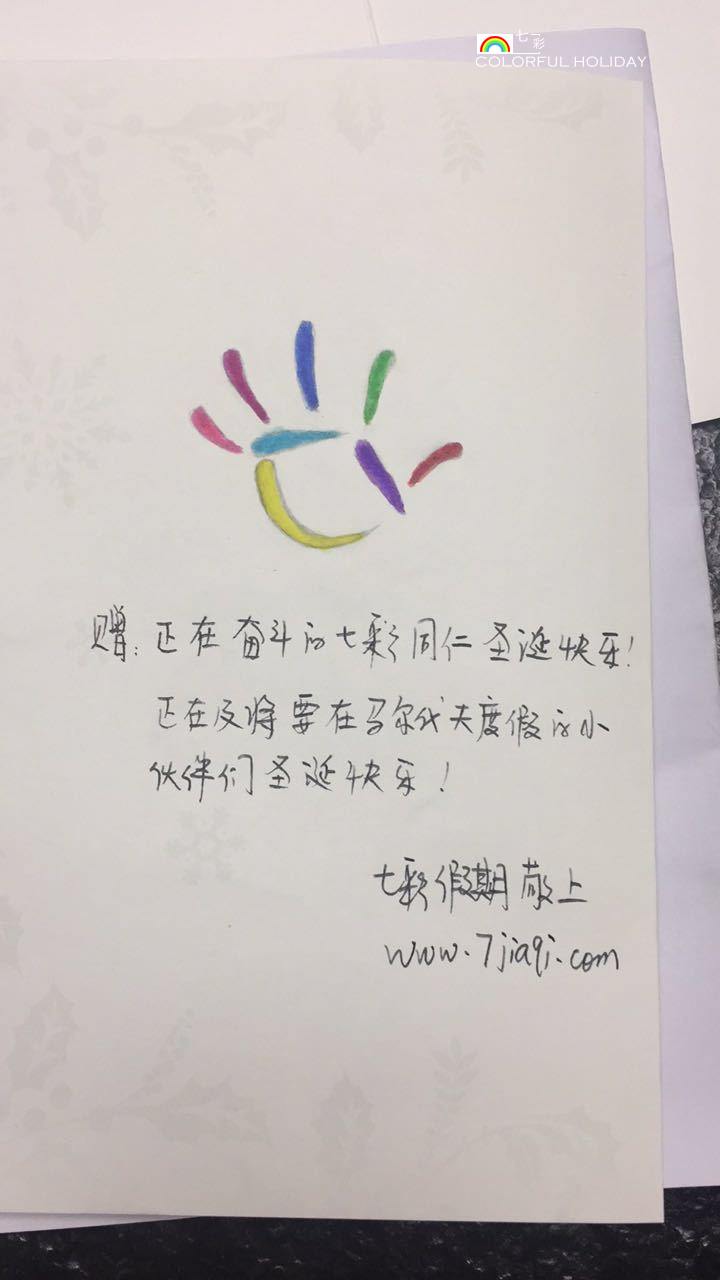 七彩
COLORFUL HOLIDAY
赠: 正在奋斗的七彩同仁圣诞快乐!
正在及将要在马尔代夫度假的小
伙伴们圣诞快乐!
七彩假期敬上
www.7jiaqi.com